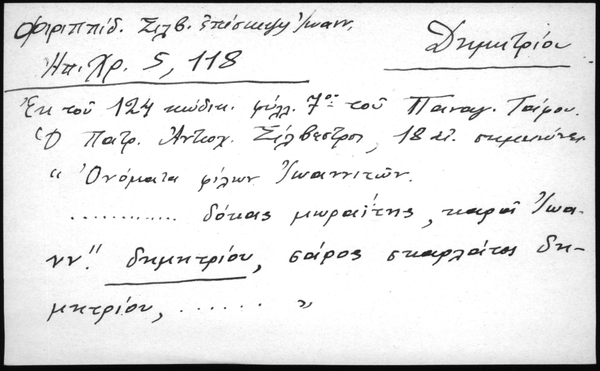 Φιριππίδ. Σιλβ. ἐπίσκεψη Ἰωανν.
Δημητρίου
Ἠπ. Χρ. 5, 118
Ἐκ τοῦ 124 κώδικ. φύλλ. 7ον τοῦ Παναγ. Τάφου.
Ὁ Πατρ. Ἀντιοχ. Σίλβεστρος, 18 αἰ. σημειώνει
"Ὀνόματα φίλων Ἰωαννιτῶν.
............ δόκας μωραΐτης, καραϊωα-
νν." δημητρίου, σάρος σκαρλάτος δη-
μητρίου, ...... "